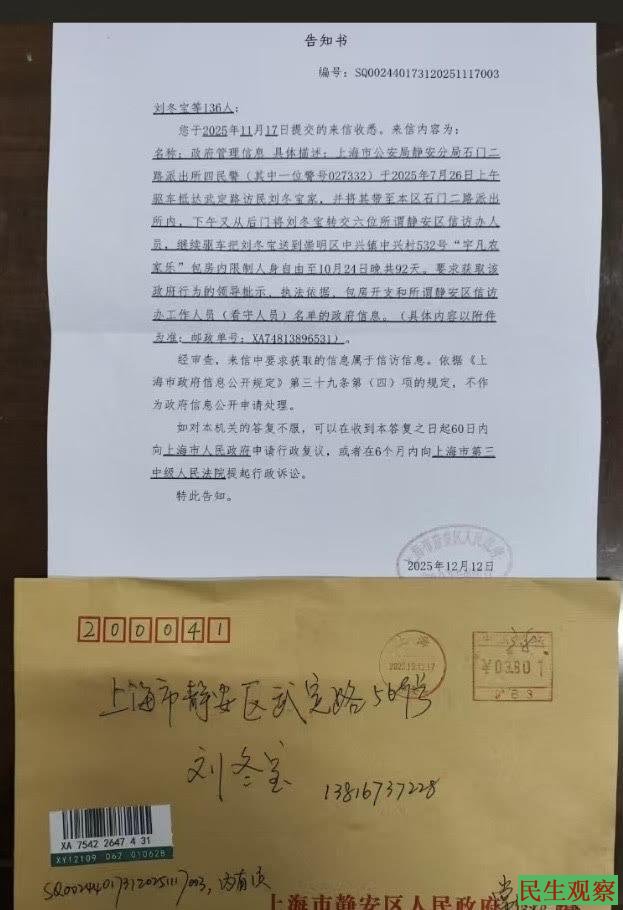 告知书
编号：SQ002440173120251117003
刘冬宝等136人：
您于2025年11月17日提交的来信收悉。来信内容为：
名称：政府管理信息 具体描述：上海市公安局静安分局石门二
路派出所四民警（其中一位警号027332）于2025年7月26日上午
驱车抵达武定路访民刘冬宝家，并将其带至本区石门二路派出
所内，下午又从后门将刘冬宝转交六位所谓静安区信访办人
员，继续驱车把刘冬宝送到崇明区中兴镇中兴村532号“宇凡农
家乐”包房内限制人身自由至10月24日晚共92天。要求获取该
政府行为的领导批示、执法依据、包房开支和所谓静安区信访
办工作人员（看守人员）名单的政府信息。（具体内容以附件
为准；邮政单号：XA74813896531）。
经审查，来信中要求获取的信息属于信访信息。依据《上
海市政府信息公开规定》第三十九条第（四）项的规定，不作
为政府信息公开申请处理。
如对本机关的答复不服，可以在收到本答复之日起60日内
向上海市人民政府申请行政复议，或者在6个月内向上海市第三
中级人民法院提起行政诉讼。
特此告知。
上海市静安区人民政府
2025年12月12日
200041
上海
2025.12.17
¥03.80
上海市静安区武定路569号
刘冬宝
13816737228
XA 7542 2647 4 31
XY12109 062 01062B
SQ002440173120251117003,
上海市静安区人民政府
民生观察